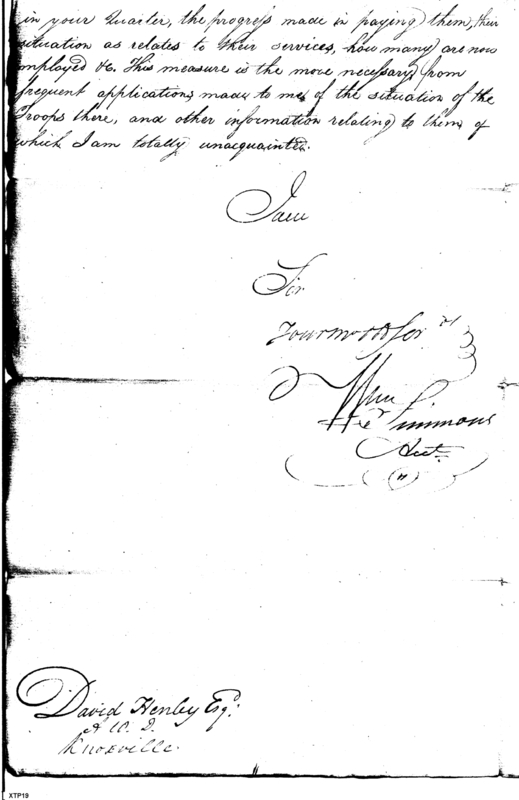 in your Quarter, the progress made in paying them, their
situation as relates to their services, how many are now
employed &c. This measure is the more necessary, from
frequent applications made to me, of the situation of the
Troops there, and other information relating to them of
which I am totally unacquainted.
I am
Sir
Your mo obd Ser vt
Wm Simmons
Acct
David Henley Esqr.
A W. D.
Knoxville.
XTP19